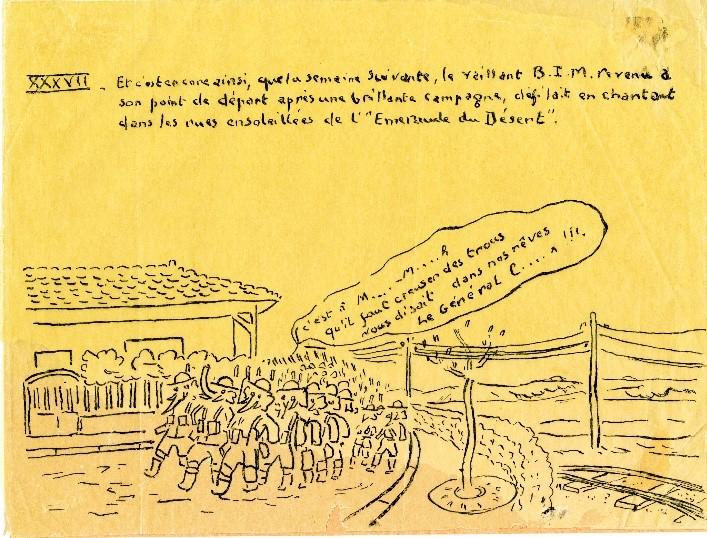 XXXVII - Et c'est encore ainsi, que la semaine suivante, le vaillant B.I.M. revenu à
son point de départ après une brillante campagne, défilait en chantant
dans les rues ensoleillées de l'"Emeraude du Désert".
c'est à M.....M....R
qu'il faut creuser des trous
nous disait dans nos rêves
Le Général C....n !!!